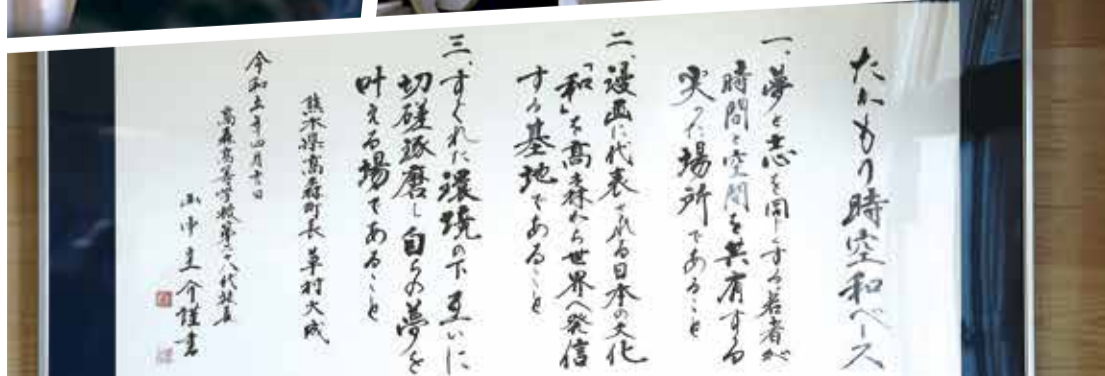 たかもり時空和ベース
一、夢と志を同じくする若者が
時間と空間を共有する
尖った場所であること
二、漫画に代表される日本の文化
「和」を高森から世界へ発信
する基地であること
三、すぐれた環境の下互いに
切磋琢磨し自らの夢を
叶える場であること
熊本県高森町長 草村大成
令和五年四月吉日
高森高等学校第二十八代校長
山中圭介謹書